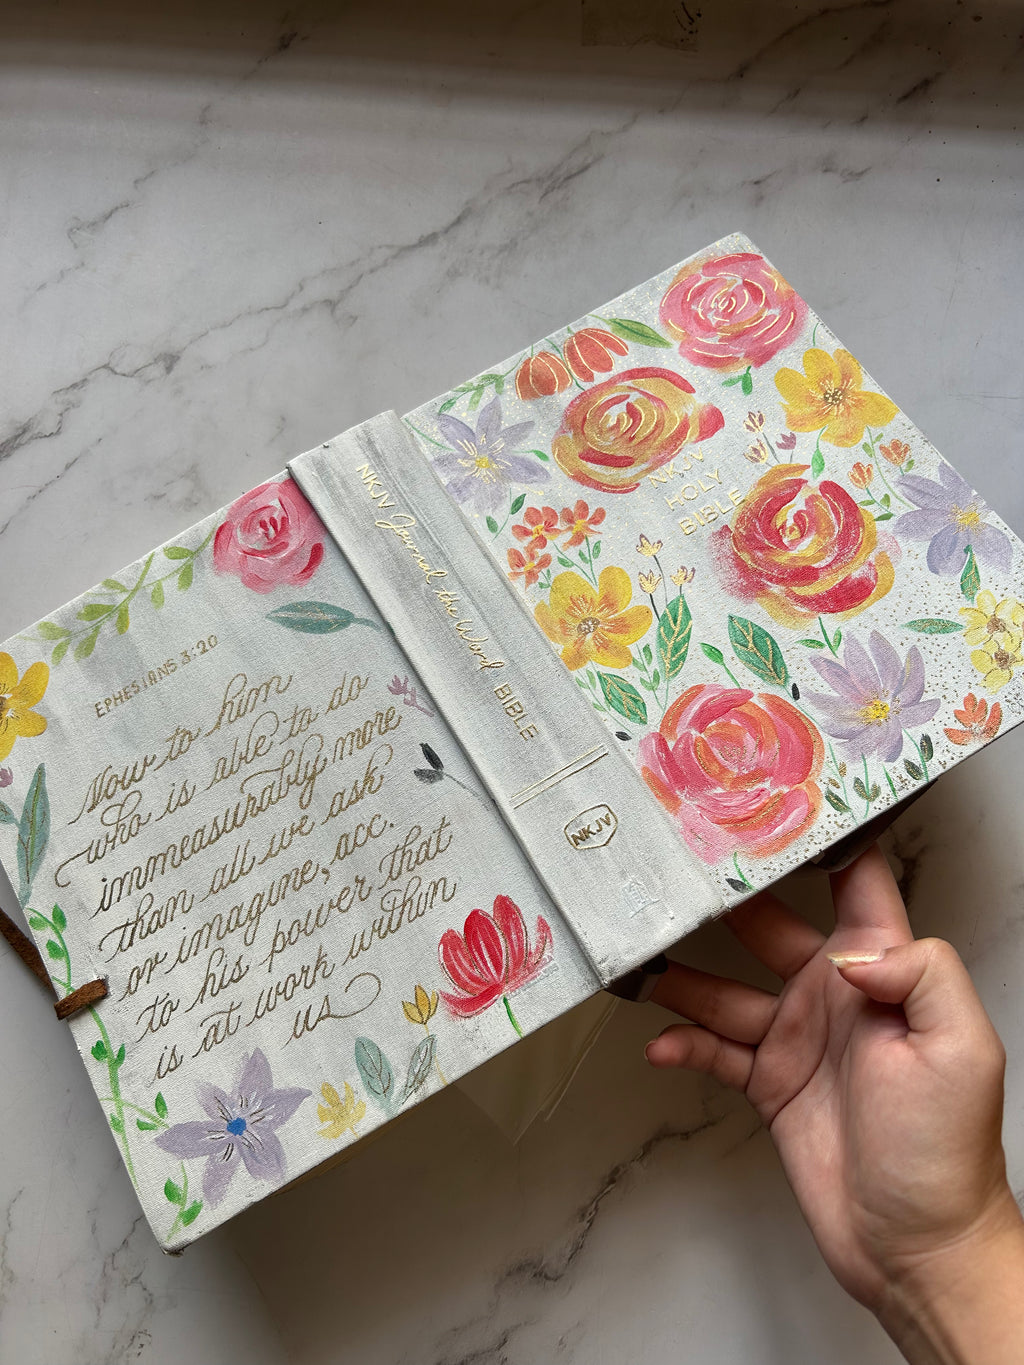 EPHESIANS 3:20
Now to him
who is able to do
immeasurably more
than all we ask
or imagine, acc.
to his power that
is at work within
us
NKJV Journal the Word BIBLE
NKJV
NKJV
HOLY
BIBLE